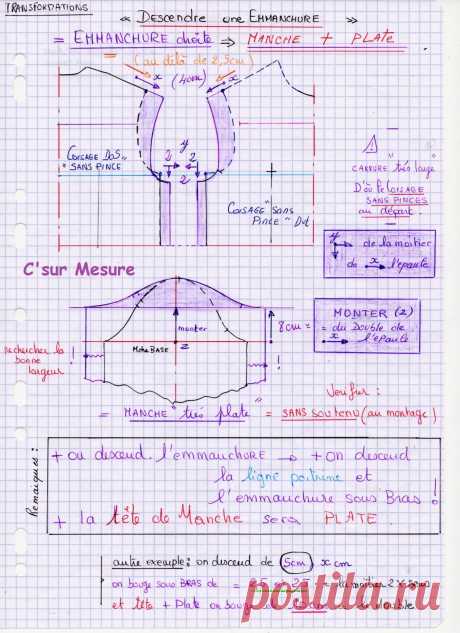 TRANSFORMATIONS
« Descendre une EMMANCHURE »
= EMMANCHURE droite ⇒ MANCHE + PLATE
= (au delà de 2,5cm)
x (4cm) x
CORSAGE DOS "SANS PINCE"
y
2 2
2
CORSAGE "SANS PINCE" Dvt
CARRURE très large
D'où le CORSAGE
SANS PINCES
au départ.
y → de la moitier
de x → l'épaule
C'sur Mesure
monter
z
Mche BASE
8cm =
MONTER (z)
= du Double de
x → l'épaule
rechercher la
bonne
largeur !
!
Vérifier :
= MANCHE "très plate" = SANS soutenu (au montage)
Remarques :
+ on descend l'emmanchure → + on descend
la ligne poitrine et
l'emmanchure sous Bras !
+ la tête de Manche sera PLATE.
autre exemple : on descend de 5cm, x cm
on bouge sous BRAS de = 2,5
la moitier
et tête + Plate on bouge de
double
postila.ru